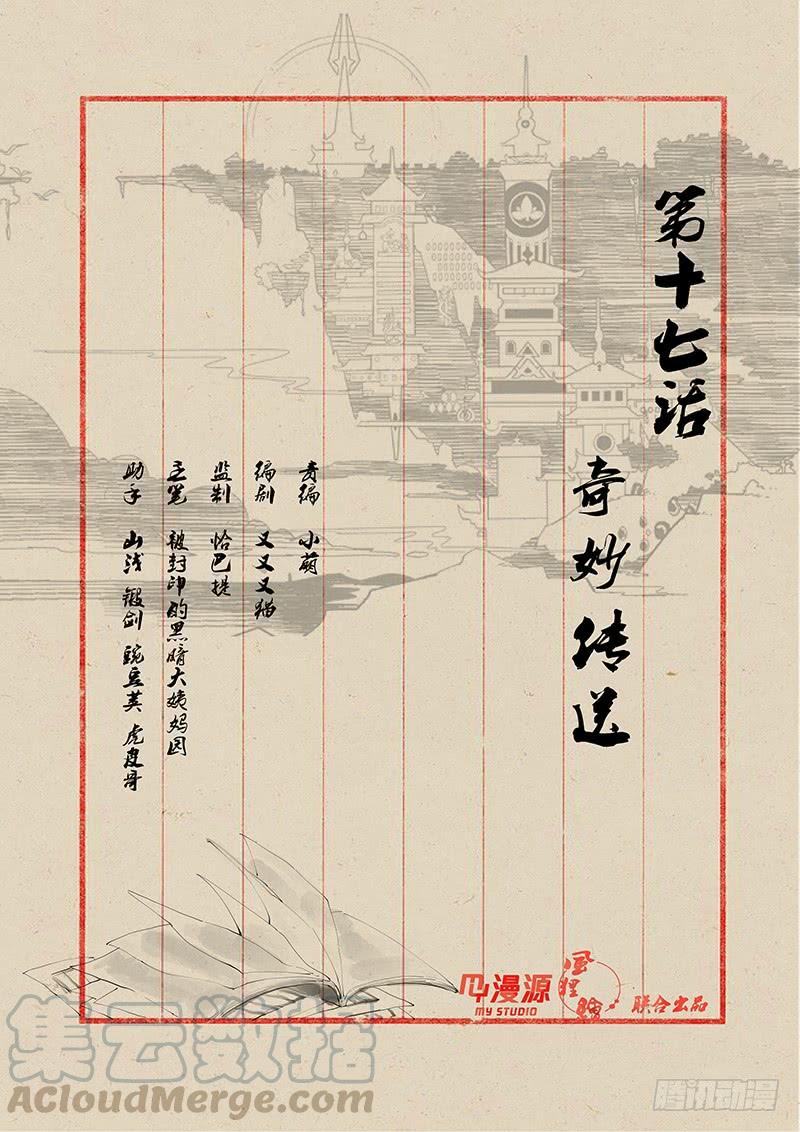 第十七话
奇妙传送
责编 小萌
编剧 又又又猫
监制 恰巴提
主笔 被封印的黑暗大姨妈园
助手 山浅 锻剑 豌豆荚 虎皮哥
漫源
MY STUDIO
风狸
联合出品
集云数据
ACloudMerge.com
腾讯动漫